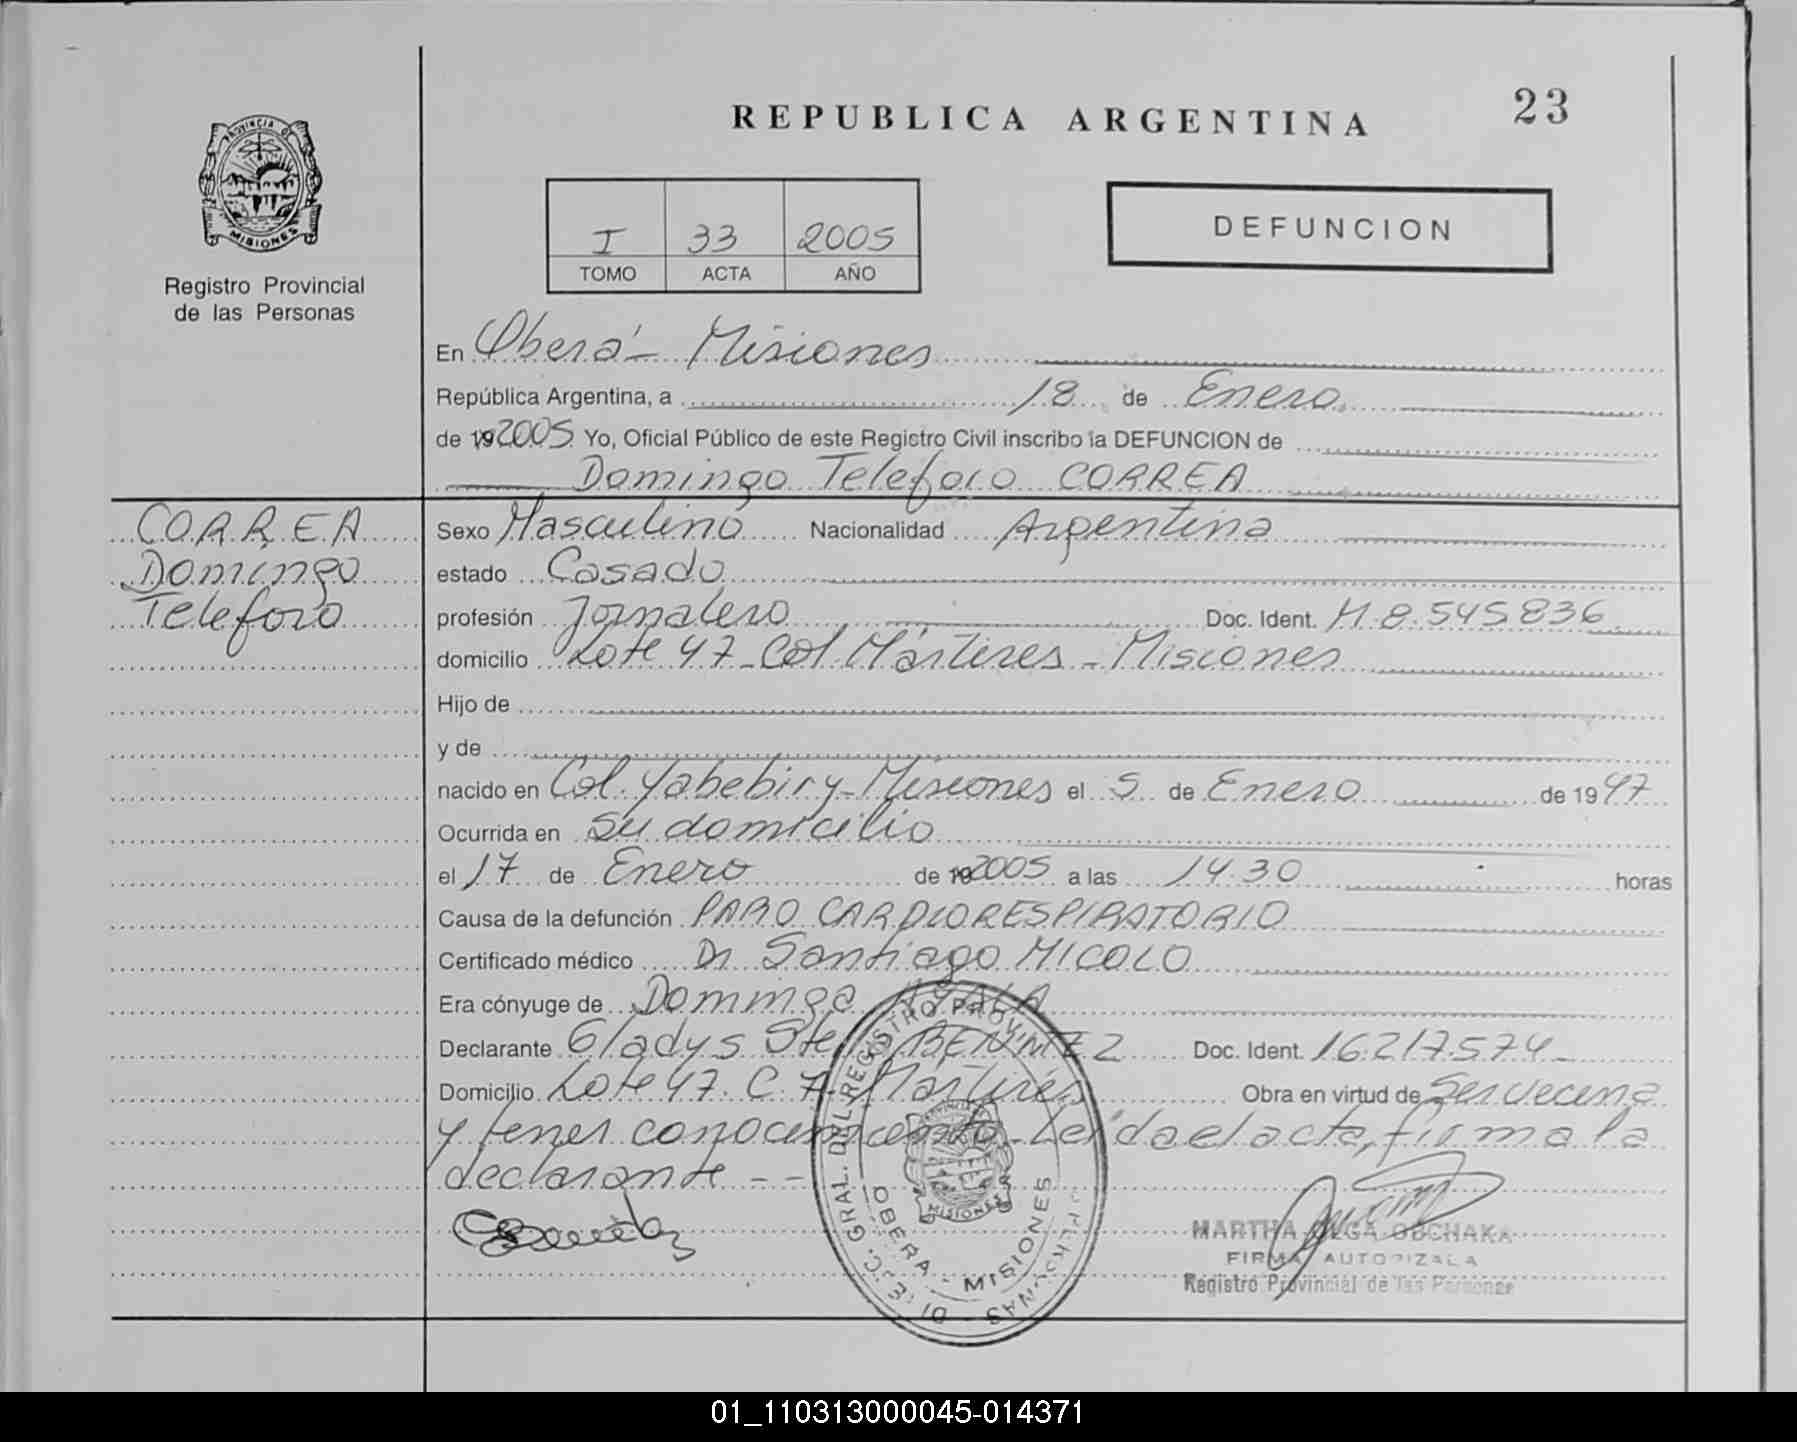 REPUBLICA ARGENTINA
23
PROVINCIA DE
MISIONES
Registro Provincial
de las Personas
I 33 2005
TOMO ACTA AÑO
DEFUNCION
En Oberá - Misiones
República Argentina, a 18 de Enero
de 19 2005 Yo, Oficial Público de este Registro Civil inscribo la DEFUNCION de
Domingo Teleforo CORREA
CORREA
Domingo
Teleforo
Sexo Masculino Nacionalidad Argentina
estado Casado
profesión Jornalero Doc. Ident. M 8.545836
domicilio Lote 47 - Col. Mártires - Misiones
Hijo de
y de
nacido en Col. Yabebiry - Misiones el 5 de Enero de 1947
Ocurrida en su domicilio
el 17 de Enero de 19 2005 a las 14.30 horas
Causa de la defunción PARO CARDIORESPIRATORIO
Certificado médico Dr Santiago MICOLO
Era cónyuge de Dominga AYALA
Declarante Gladys BENITEZ Doc. Ident. 16.217.574
Domicilio Lote 47. C. Mártires Obra en virtud de Ser vecina
y tener conocimiento - Leída el acta, firma la
declarante - -
DIREC. GRAL. DEL REGISTRO PROVINCIAL PERSONAS
OBERA - MISIONES
MISIONES
MARTHA OLGA OBCHAKA
FIRMA AUTORIZADA
Registro Provincial de las Personas
01_110313000045-014371